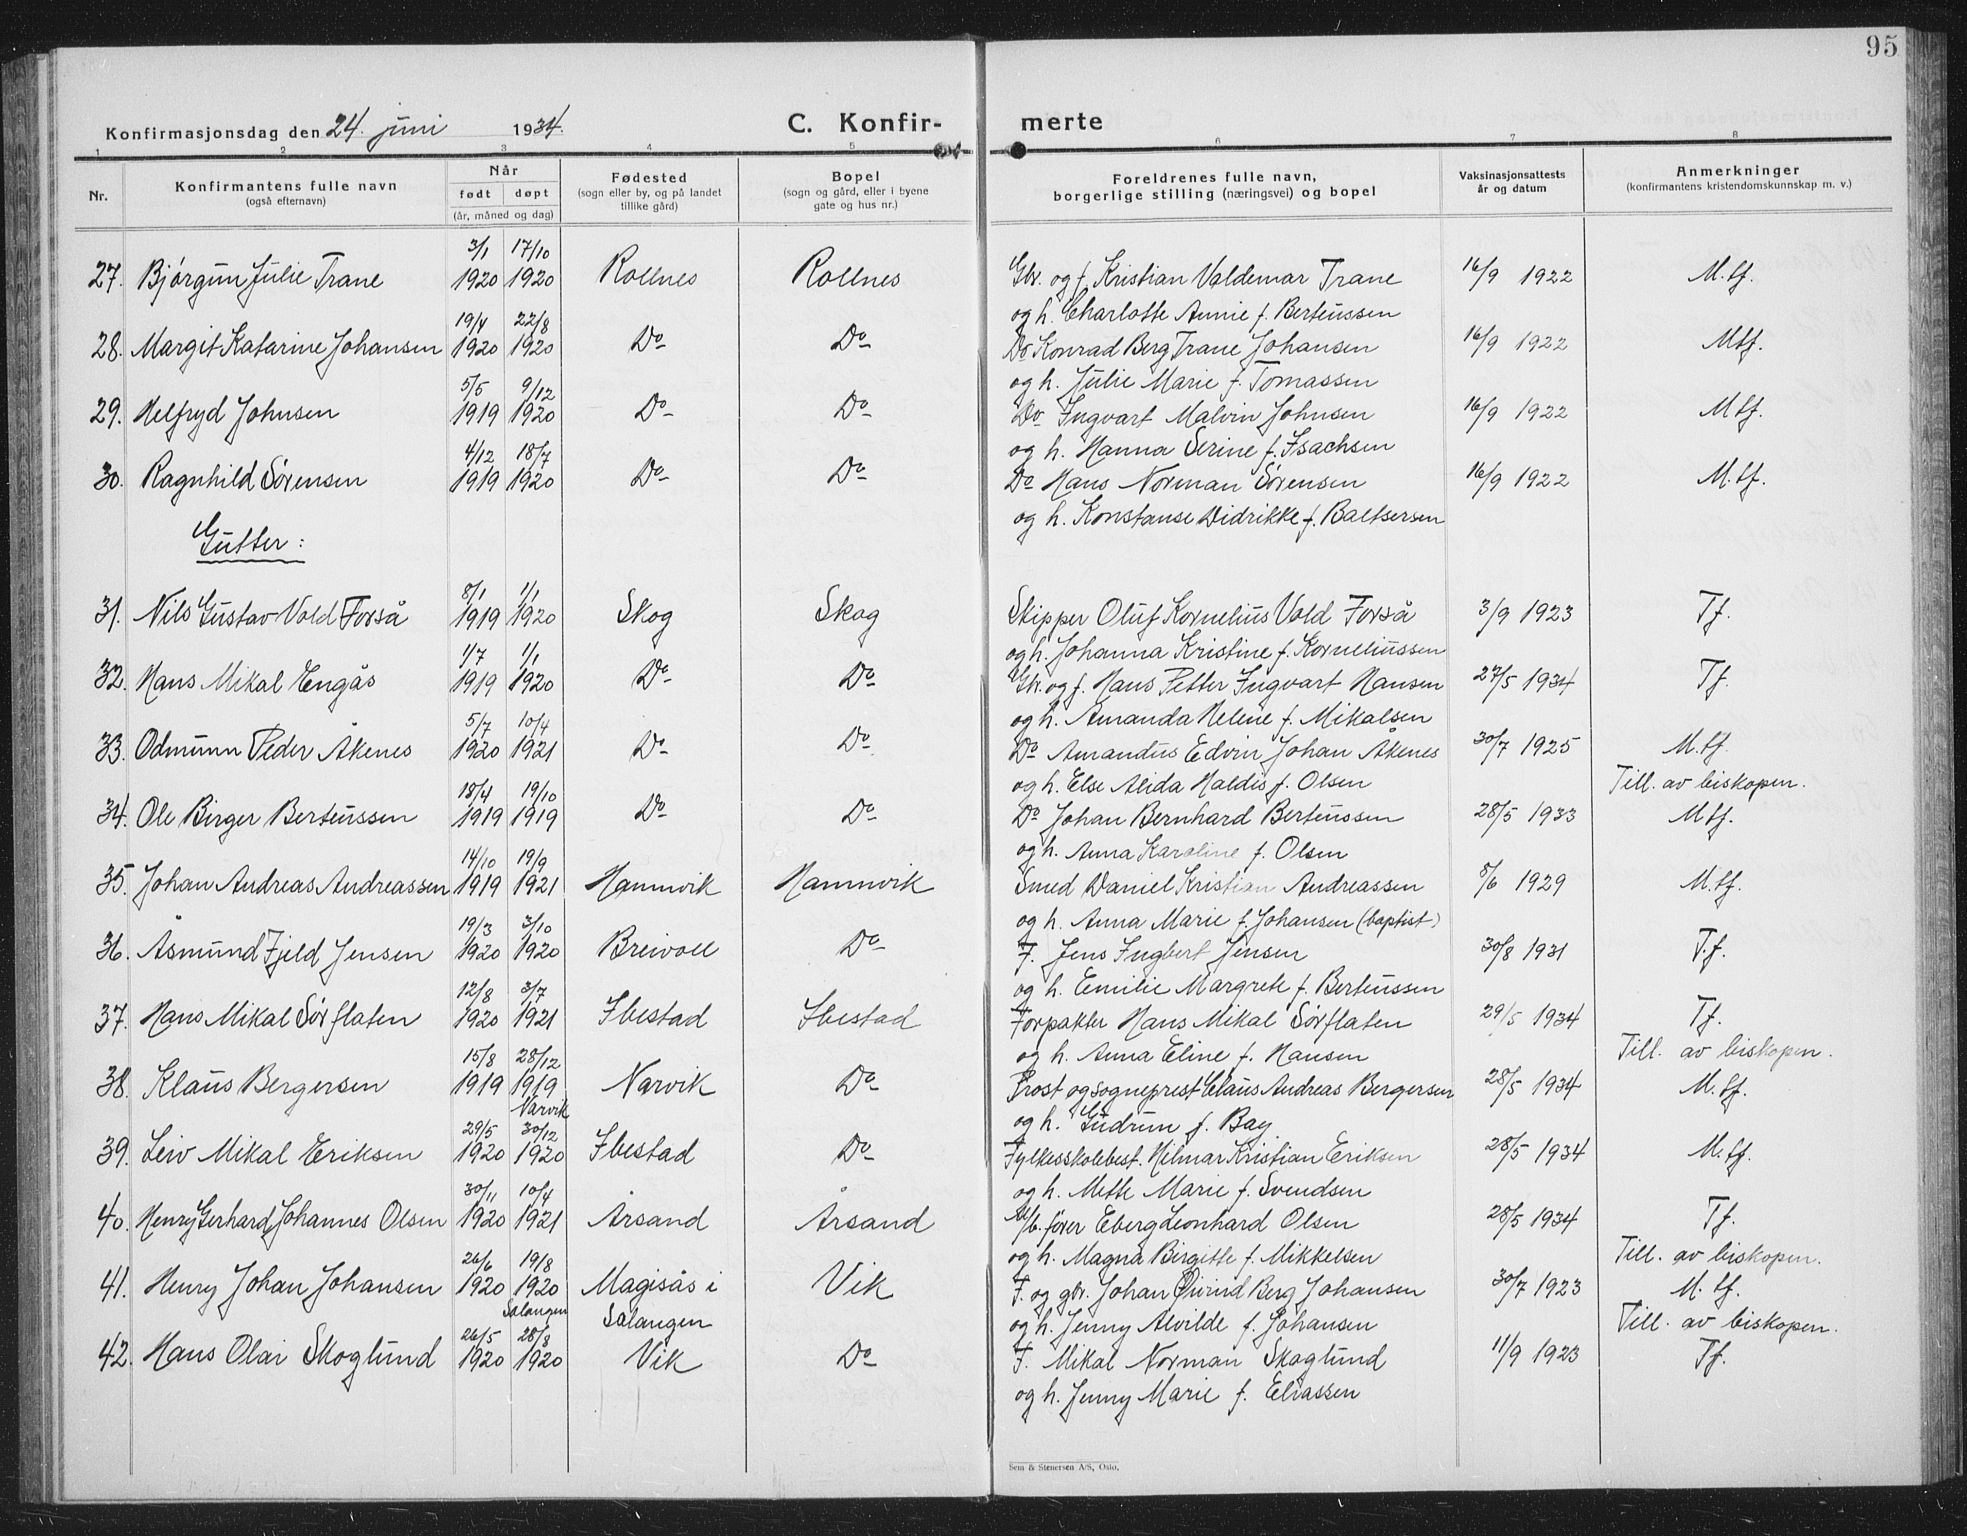 95
Konfirmasjonsdag den 24. juni 1934.
C. Konfir-merte
1 2 3 4 5 6 7 8
Nr. Konfirmantens fulle navn (også efternavn) Når født døpt (år, måned og dag) Fødested (sogn eller by, og på landet tillike gård) Bopel (sogn og gård, eller i byene gate og hus nr.) Foreldrenes fulle navn, borgerlige stilling (næringsvei) og bopel Vaksinasjonsattests år og datum Anmerkninger (konfirmantens kristendomskunnskap m. v.)
27. Bjørgun Julie Trane 3/1 1920 17/10 1920 Rollnes Rollnes Gbr. og f. Kristian Valdemar Trane 16/9 1922 M.tf.
og h. Charlotte Annie f. Berteussen
28. Margit Katarine Johansen 19/4 1920 22/8 1920 Do Do Do Konrad Berg Trane Johansen 16/9 1922 Mtf.
og h. Julie Marie f. Tomassen
29. Helfryd Johnsen 5/5 1919 9/12 1920 Do Do Do Ingvart Malvin Johnsen 16/9 1922 Mtf.
og h. Hanna Serine f. Isachsen
30. Ragnhild Sørensen 4/12 1919 18/7 1920 Do Do Do Hans Norman Sørensen 16/9 1922 M.tf.
og h. Konstanse Didrikke f. Baltsersen
Gutter:
31. Nils Gustav Vold Forså 8/1 1919 1/1 1920 Skog Skog Skipper Oluf Kornelius Vold Forså 3/9 1923 Tf.
og h. Johanna Kristine f. Korneliussen
32. Hans Mikal Engås 1/7 1919 1/1 1920 Do Do Gbr. og f. Hans Petter Ingvart Hansen 27/5 1934 Tf.
og h. Amanda Helene f. Mikalsen
33. Odmunn Peder Åkenes 5/7 1920 10/4 1921 Do Do Do Amandus Edvin Johan Åkenes 30/7 1925 M.tf.
og h. Else Alida Haldis f. Olsen Till. av biskopen.
34. Ole Birger Berteussen 18/4 1919 19/10 1919 Do Do Do Johan Bernhard Berteussen 28/5 1933 Mtf.
og h. Anna Karoline f. Olsen
35. Johan Andreas Andreassen 14/10 1919 19/9 1921 Hamnvik Hamnvik Smed Daniel Kristian Andreassen 8/6 1929 M.tf.
og h. Anna Marie f. Johansen (baptist)
36. Åsmund Fjeld Jensen 19/3 1920 3/10 1920 Breivoll Do F. Jens Ingbert Jensen 30/8 1931 T.f.
og h. Emilie Margrete f. Berteussen
37. Hans Mikal Sørflaten 12/8 1920 3/7 1921 Ibestad Ibestad Forpakter Hans Mikal Sørflaten 29/5 1934 Tf.
og h. Anna Eline f. Hansen Till. av biskopen.
38. Klaus Bergersen 15/8 1919 28/12 1919 Narvik Narvik Do Prost og sogneprest Claus Andreas Bergersen 28/5 1934 M.tf.
og h. Gudrun f. Bay
39. Leiv Mikal Eriksen 29/5 1920 30/12 1920 Ibestad Do Fylkesskolebest. Hilmar Kristian Eriksen 28/5 1934 M.tf.
og h. Mette Marie f. Svendsen
40. Henry Gerhard Johannes Olsen 30/11 1920 10/4 1921 Årsand Årsand M/b. fører Eberg Leonhard Olsen 28/5 1934 Tf.
og h. Magna Birgitte f. Mikkelsen Till. av biskopen.
41. Henry Johan Johansen 26/6 1920 19/8 1920 Salangen Magisås i Salangen Vik F. og gbr. Johan Øivind Berg Johansen 30/7 1923 M.tf.
og h. Jenny Alvilde f. Johansen Till. av biskopen.
42. Hans Olai Skoglund 26/5 1920 28/8 1920 Vik Do F. Mikal Norman Skoglund 11/9 1923 Tf.
og h. Jenny Marie f. Eliassen
Sem & Stenersen A/S, Oslo.